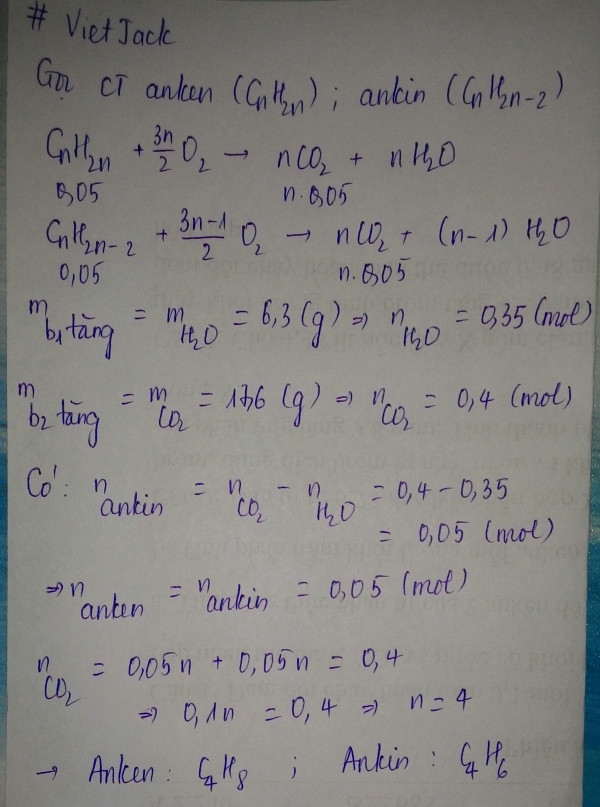 # VietJack
Gọi CT anken (CnH2n) ; ankin (CnH2n-2)
CnH2n + 3n/2 O2 → nCO2 + nH2O
0,05 n.0,05
CnH2n-2 + 3n-1/2 O2 → nCO2 + (n-1) H2O
0,05 n.0,05
m b1 tăng = m H2O = 6,3 (g) ⇒ n H2O = 0,35 (mol)
m b2 tăng = m CO2 = 17,6 (g) ⇒ n CO2 = 0,4 (mol)
Có: n ankin = n CO2 - n H2O = 0,4 - 0,35
= 0,05 (mol)
⇒ n anken = n ankin = 0,05 (mol)
n CO2 = 0,05n + 0,05n = 0,4
⇒ 0,1n = 0,4 ⇒ n = 4
→ Anken : C4H8 ; Ankin : C4H6